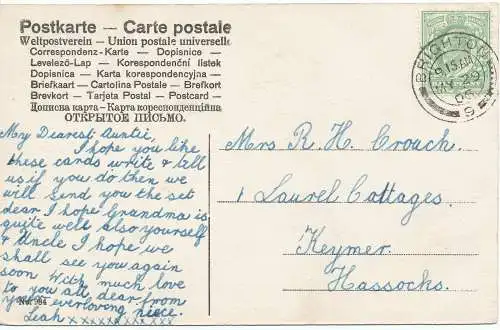 Postkarte — Carte postale
Weltpostverein — Union postale universelle
Correspondenz-Karte — Dopisnice
Levelező-Lap — Korespondenční listek
Dopisnica — Karta korespondencyjna —
Briefkaart — Cartolina Postale — Brefkort
Brevkort — Tarjeta Postal — Postcard —
Дописна карта — Карта кореспонденційна
ОТКРЫТОЕ ПИСЬМО.
My Dearest Auntie,
I hope you like
these cards write & tell
us if you do then we
will send you the set
dear. I hope Grandma is
quite well also yourself
& Uncle I hope we
shall see you again
soon With much love
to you all dear from
your everloving niece.
Leah xxxxxxxxxxx
No. 984
BRIGHTON
9 15 AM
9
Mrs R. H. Crouch.
1 Laurel Cottages.
Keymer.
Hassocks.